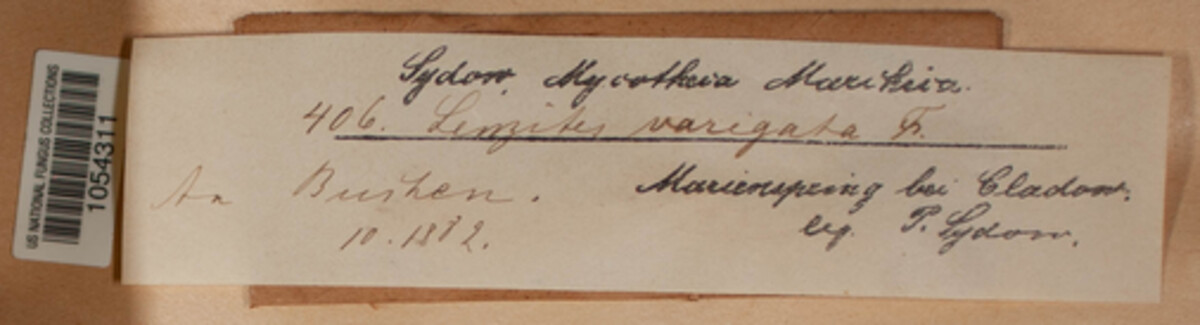 US NATIONAL FUNGUS COLLECTIONS
1054311
Sydow, Mycotheca Marchica.
406. Lenzites varigata F.
An Buchen. Marienspring bei Cladow.
10.1882. leg. P. Sydow.